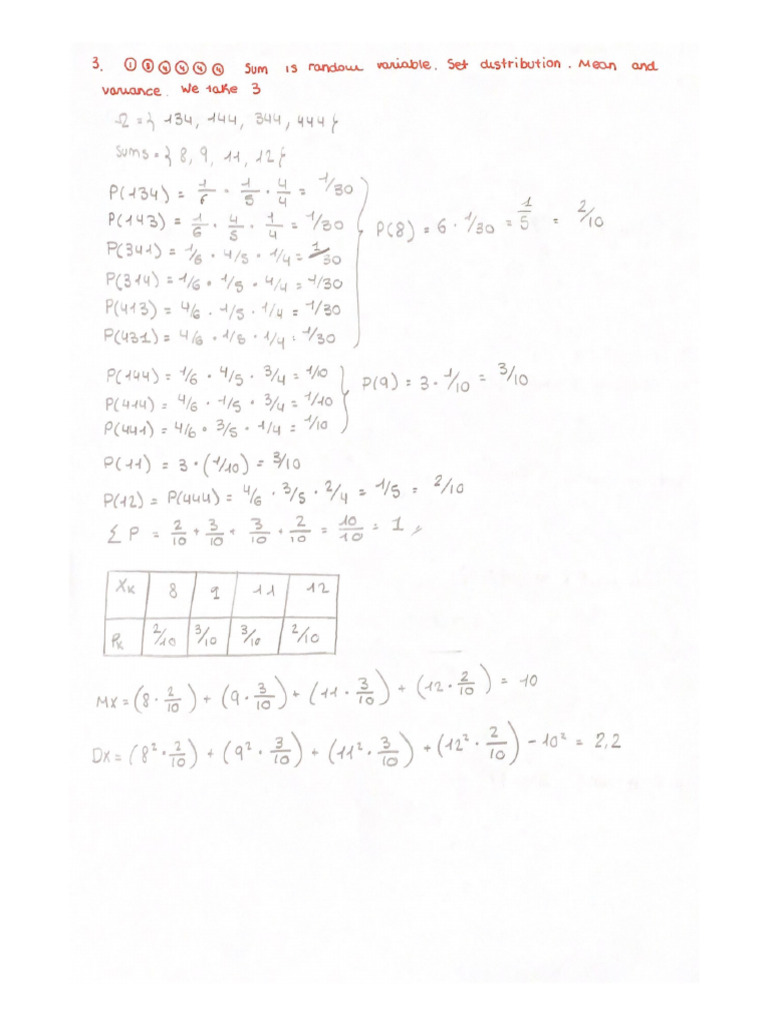 3. ① ③ ④ ④ ④ ④ Sum is random variable. Set distribution. Mean and
variance. We take 3
Ω = { 134, 144, 344, 444 }
Sums = { 8, 9, 11, 12 }
P(134) = 1/6 · 1/5 · 4/4 = 1/30
P(143) = 1/6 · 4/5 · 1/4 = 1/30
P(341) = 1/6 · 4/5 · 1/4 = 1/30
P(8) = 6 · 1/30 = 1/5 = 2/10
P(314) = 1/6 · 1/5 · 4/4 = 1/30
P(413) = 4/6 · 1/5 · 1/4 = 1/30
P(431) = 4/6 · 1/5 · 1/4 = 1/30
P(144) = 1/6 · 4/5 · 3/4 = 1/10
P(414) = 4/6 · 1/5 · 3/4 = 1/10
P(441) = 4/6 · 3/5 · 1/4 = 1/10
P(9) = 3 · 1/10 = 3/10
P(11) = 3 · (1/10) = 3/10
P(12) = P(444) = 4/6 · 3/5 · 2/4 = 1/5 = 2/10
∑ P = 2/10 + 3/10 + 3/10 + 2/10 = 10/10 = 1
Xk 8 9 11 12
Pk 2/10 3/10 3/10 2/10
MX = (8 · 2/10) + (9 · 3/10) + (11 · 3/10) + (12 · 2/10) = 10
DX = (8² · 2/10) + (9² · 3/10) + (11² · 3/10) + (12² · 2/10) - 10² = 2,2